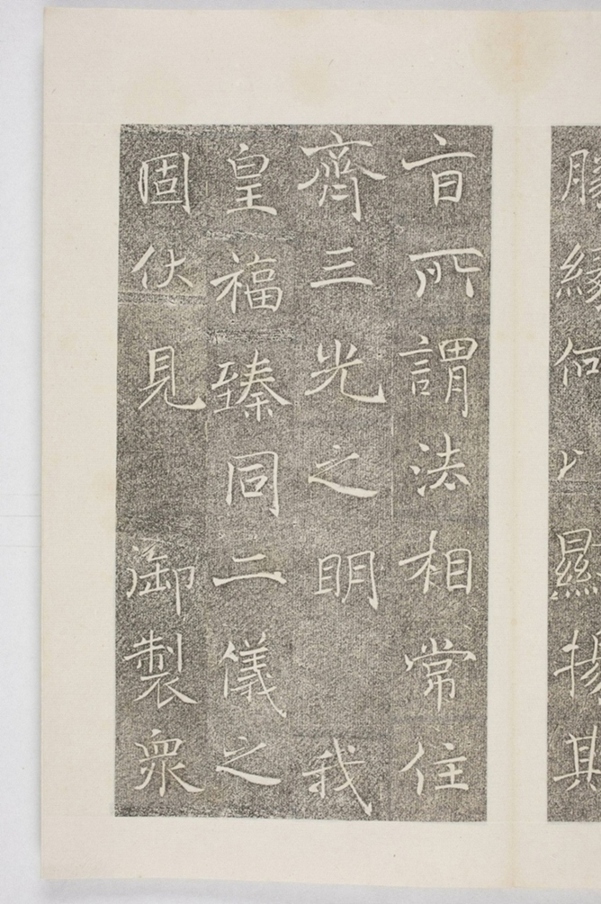 勝緣何以顯揚斯
旨所謂法相常住
齊三光之明 我
皇福臻同二儀之
固伏見 御製衆